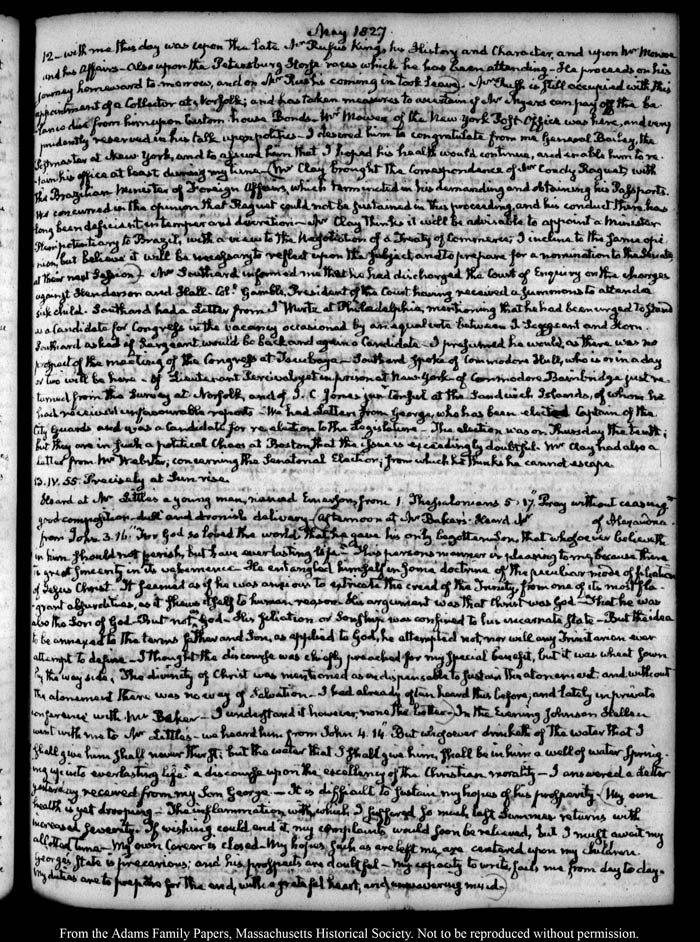 May 1827
12 - with me this day was upon the late Mr Rufus King, his History and Character, and upon Mr Monroe
and his Affairs - Also upon the Petersburg Horse races which he has been attending - He proceeds on his
journey homeward to morrow, and on Mr Rush's coming in took leave. Mr Rush is still occupied with the
appointment of a Collector at Norfolk; and has taken measures to ascertain if Mr Myers can pay off the ba-
lance due from him upon Custom house Bonds - Mr Mower of the New York Post-Office was here, and very
prudently reserved in his talk upon politics - I desired him to congratulate from me General Bailey, the
Postmaster at New York, and to assure him that I hoped his health would continue, and enable him to re-
tain his office at least during my time - Mr Clay brought the Correspondence of Mr Condy Raguet, with
the Brazilian Minister of Foreign Affairs, which terminated in his demanding and obtaining his Passports.
We concurred in the opinion that Raguet could not be sustained in this proceeding, and his conduct there has
long been deficient in temper and discretion - Mr Clay thinks it will be advisable to appoint a Minister
Plenipotentiary to Brazil, with a view to the Negotiation of a Treaty of Commerce; I incline to the same opi-
nion, but believe it will be necessary to reflect upon the subject, and to prepare for a nomination to the Senate
at their next Session. Mr Southard informed me that he had discharged the Court of Enquiry on the charges
against Henderson and Hall - Col. Gamble, President of the Court having received a summons to attend a
sick child. Southard had a Letter from J Wurts at Philadelphia, mentioning that he had been urged to stand
as a candidate for Congress in the vacancy occasioned by an equal vote between J. Sergeant and Horn.
Southard asked if Sergeant would be back and again a Candidate - I presumed he would, as there was no
prospect of the meeting of the Congress at Tacubaya - Southard spoke of Commodore Hull, who is or in a day
or two will be here - of Lieutenant Percival yet in prison at New York - of Commodore Bainbridge just re-
turned from the Survey at Norfolk, and of J. C Jones jun Consul at the Sandwich Islands, of whom he
had received unfavourable reports - We had Letters from George, who has been elected Captain of the
City Guards and was a Candidate for re-election to the Legislature - The election was on Thursday the tenth;
but they are in such a political Chaos at Boston that the issue is exceedingly doubtful. Mr Clay had also a
Letter from Mr Webster, concerning the Senatorial Election; from which he thinks he cannot escape
13. IV. 55. Precisely at Sun rise
Heard at Mr Little's a young man, named Emerson, from 1. Thessalonians 5: 17. "Pray without ceasing"
good composition - dull and dronish delivery - Afternoon at Mr Baker's. Heard Mr of Alexandria.
from John 3. 16. "For God so loved the world that he gave his only begotten Son, that whosoever believeth
in him should not perish, but have everlasting life" - This person's manner is pleasing to me, because there
is great sincerity in its vehemence - He entangled himself in some doctrine of the peculiar mode of filiation
of Jesus Christ - It seemed as if he was anxious to extricate the creed of the Trinity from one of its most fla-
grant absurdities, as it shews itself to human reason. His argument was that Christ was God - That he was
also the Son of God - But not God - His filiation or Sonship was confined to his incarnate State - But the idea
to be annexed to the terms father and Son, as applied to God, he attempted not, nor will any Trinitarian ever
attempt to define - I thought the discourse was chiefly preached for my special benefit, but it was wheat sown
by the way side, The divinity of Christ was mentioned as indispensable to sustain the atonement, and without
the atonement there was no way of Salvation - I had already often heard this before, and lately in private
conference with Mr Baker - I understand it however, none the better - In the Evening Johnson Hellen
went with me to Mr Little's - we heard him from John 4. 14. "But whosoever drinketh of the water that I
shall give him shall never thirst; but the water that I shall give him, shall be in him a well of water spring-
ing up into everlasting life: a discourse upon the excellency of the Christian morality - I answered a Letter
yesterday received from my Son George - It is difficult to sustain my hopes of his prosperity. My own
health is yet drooping - The inflammation with which I suffered so much last Summer returns with
increased severity. If wishing could end it, my complaints would soon be relieved, but I must await my
allotted time - My own Career is closed - My hopes, such as are left me, are centered upon my children.
George's State is precarious; and his prospects are doubtful - My capacity to write fails me from day to day.
My duties are to prepare for the end, with a grateful heart, and unwavering mind.
From the Adams Family Papers, Massachusetts Historical Society. Not to be reproduced without permission.